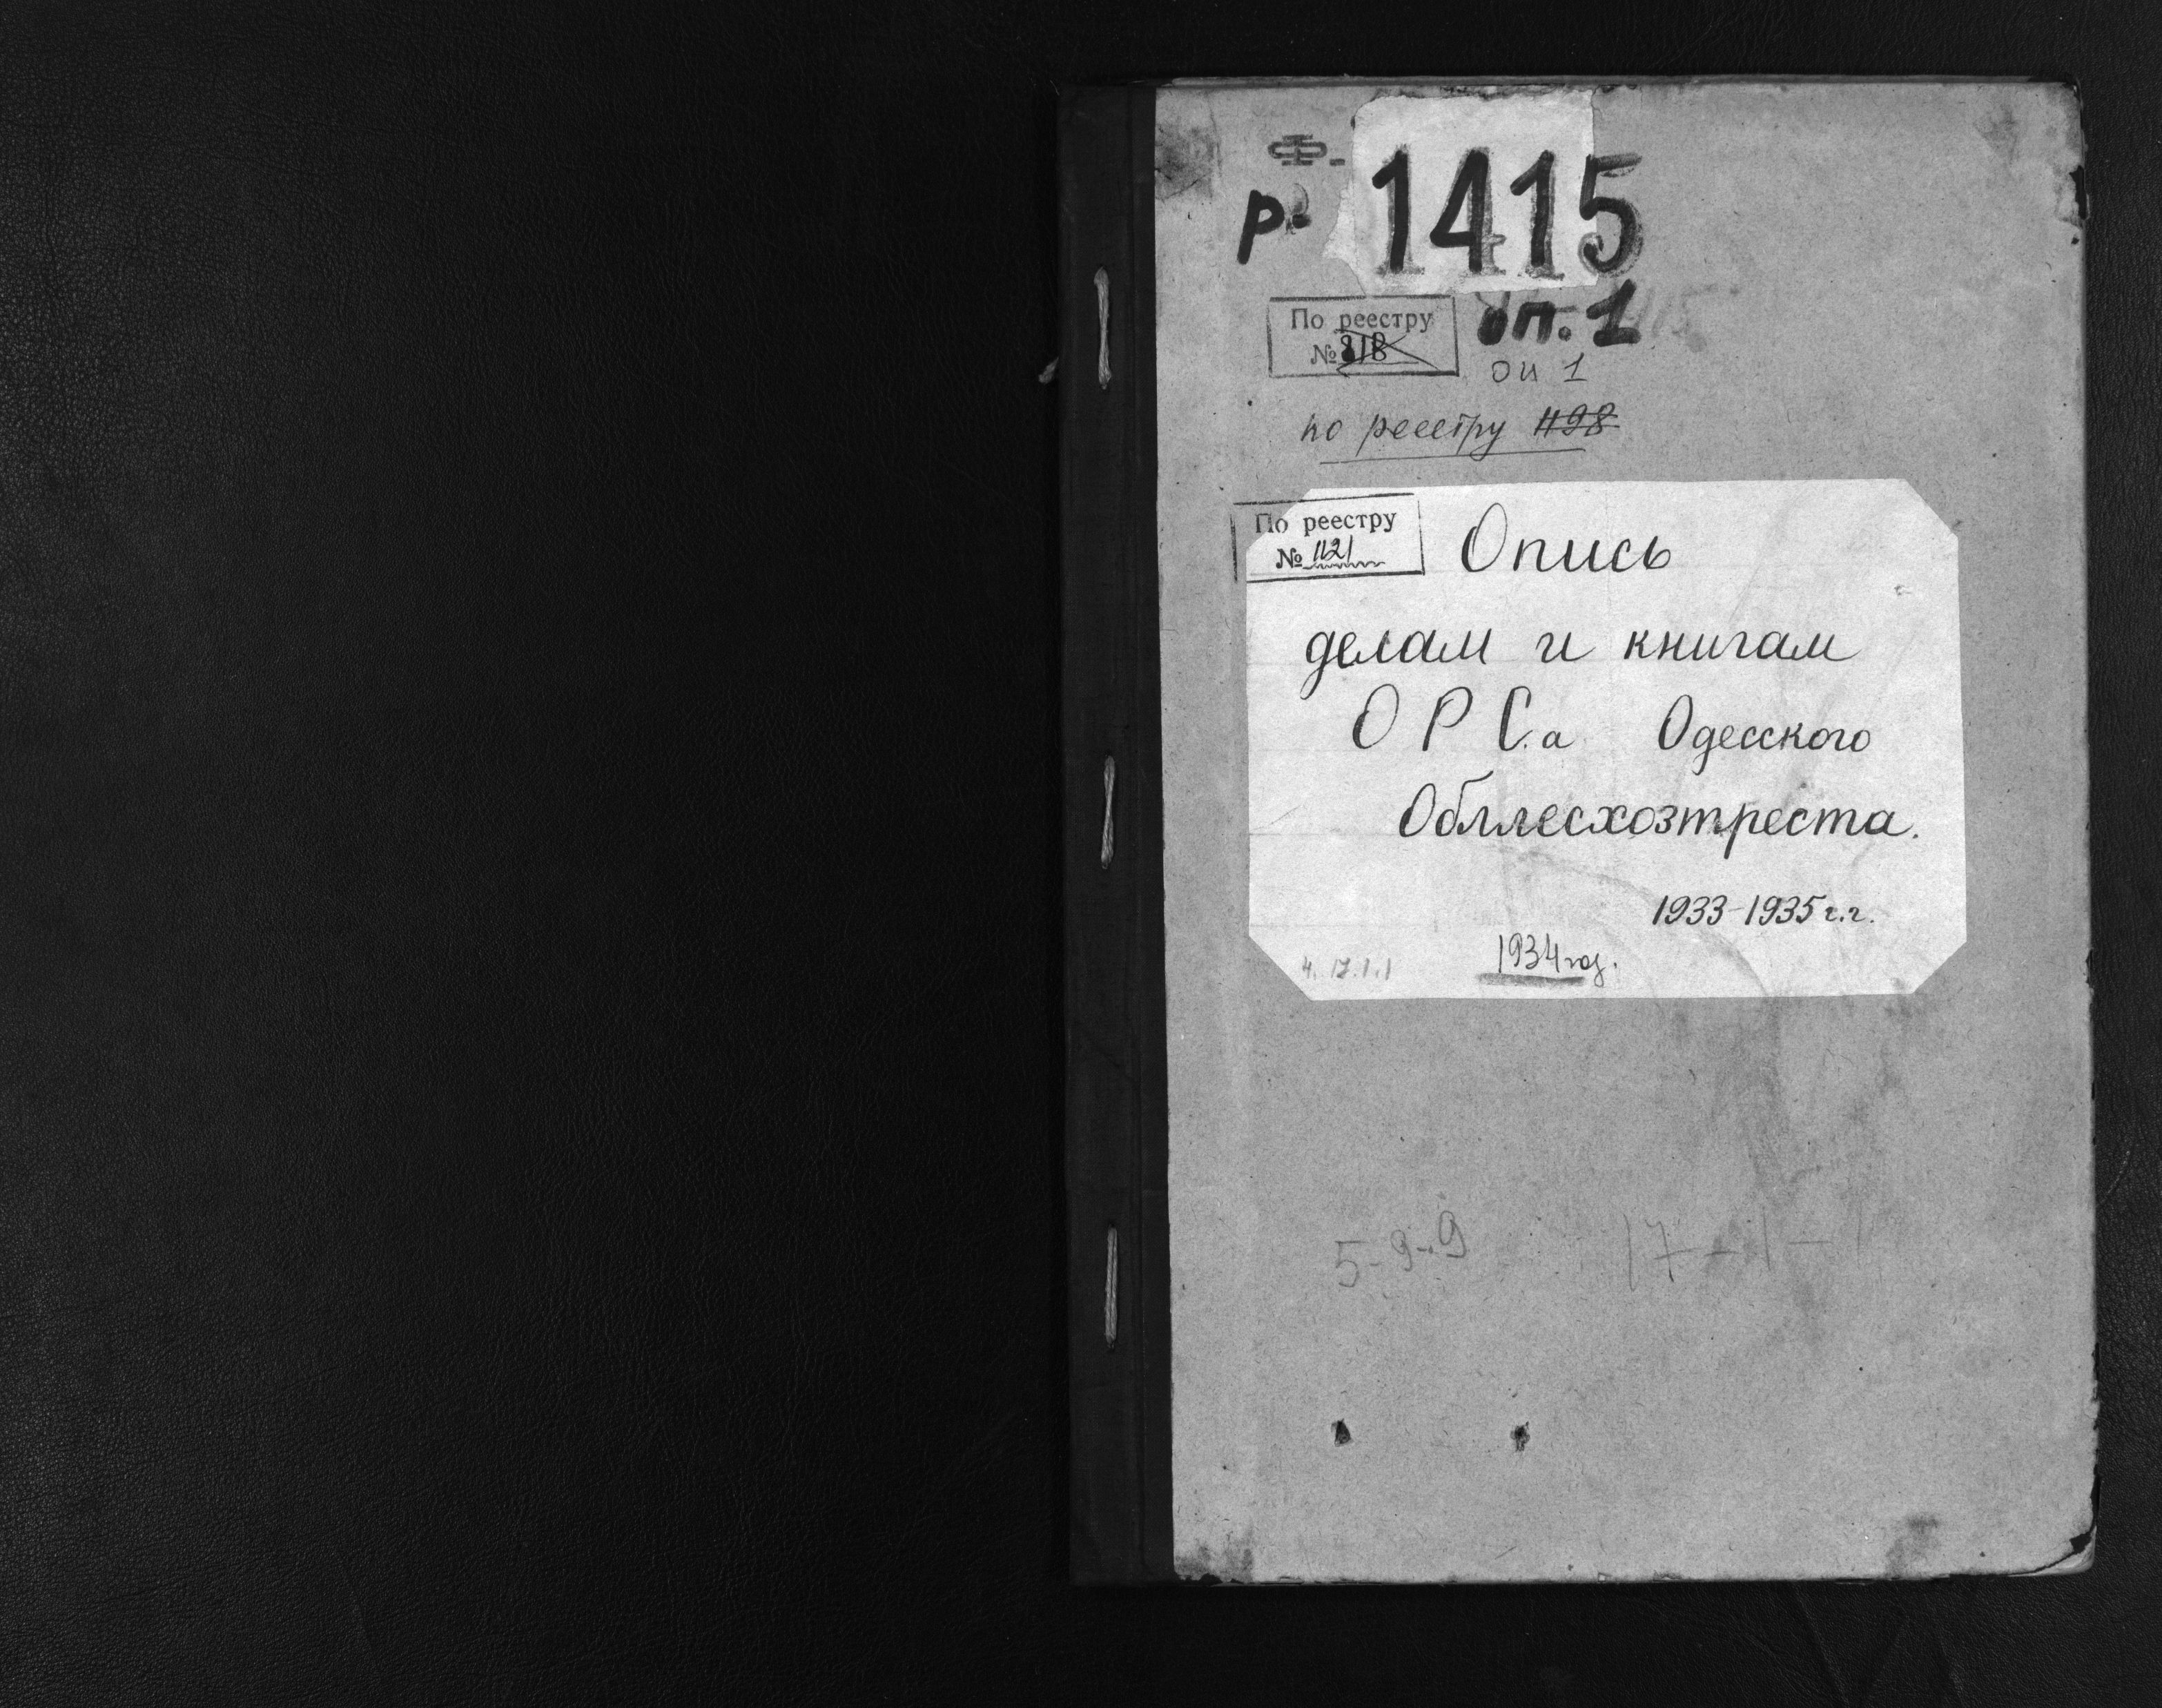 Ф-
р. 1415
оп. 1
По реестру
№ 818
оп 1
по реестру 1198
По реестру
№ 1121
Опись
делам и книгам
О Р С.а Одесского
Обллесхозтреста.
1933-1935 г.г.
1934 год.
4. 17.1.1
5-9-9 17-1-1